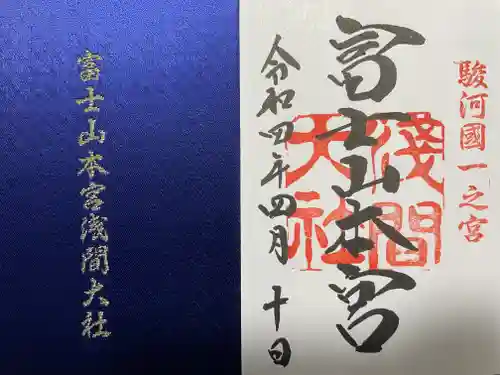 富士山本宮浅間大社
駿河國一之宮
富士山本宮
淺間大社
令和四年四月十日